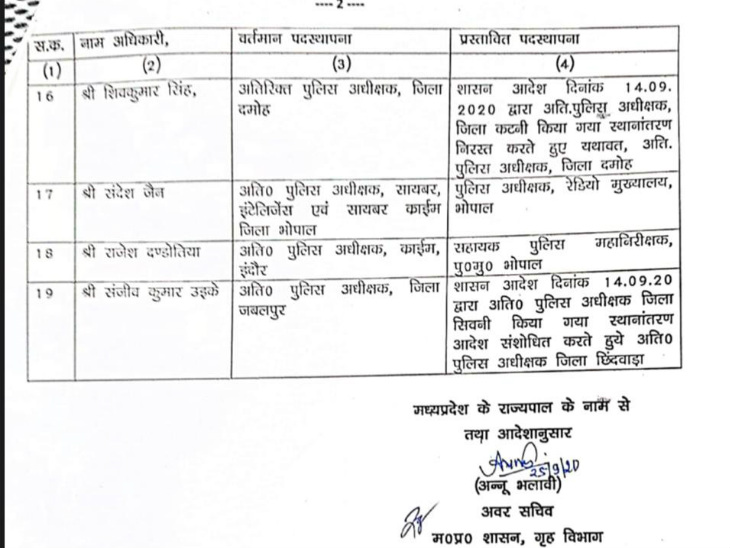 ---- 2 ----
स.क. नाम अधिकारी, वर्तमान पदस्थापना प्रस्तावित पदस्थापना
(1) (2) (3) (4)
16 श्री शिवकुमार सिंह, अतिरिक्त पुलिस अधीक्षक, जिला दमोह
शासन आदेश दिनांक 14.09.
2020 द्वारा अति.पुलिस अधीक्षक,
जिला कटनी किया गया स्थानांतरण
निरस्त करते हुए यथावत, अति.
पुलिस अधीक्षक, जिला दमोह
17 श्री संदेश जैन
अति0 पुलिस अधीक्षक, सायबर,
इंटेलिजेंस एवं सायबर काईम
जिला भोपाल
पुलिस अधीक्षक, रेडियो मुख्यालय,
भोपाल
18 श्री राजेश दण्डोतिया
अति0 पुलिस अधीक्षक, काईम,
इंदौर
सहायक पुलिस महानिरीक्षक,
पु0मु0 भोपाल
19 श्री संजीव कुमार उइके
अति0 पुलिस अधीक्षक, जिला
जबलपुर
शासन आदेश दिनांक 14.09.20
द्वारा अति0 पुलिस अधीक्षक जिला
सिवनी किया गया स्थानांतरण
आदेश संशोधित करते हुये अति0
पुलिस अधीक्षक जिला छिंदवाड़ा
मध्यप्रदेश के राज्यपाल के नाम से
तथा आदेशानुसार
25/9/20
(अन्नू भलावी)
अवर सचिव
म0प्र0 शासन, गृह विभाग